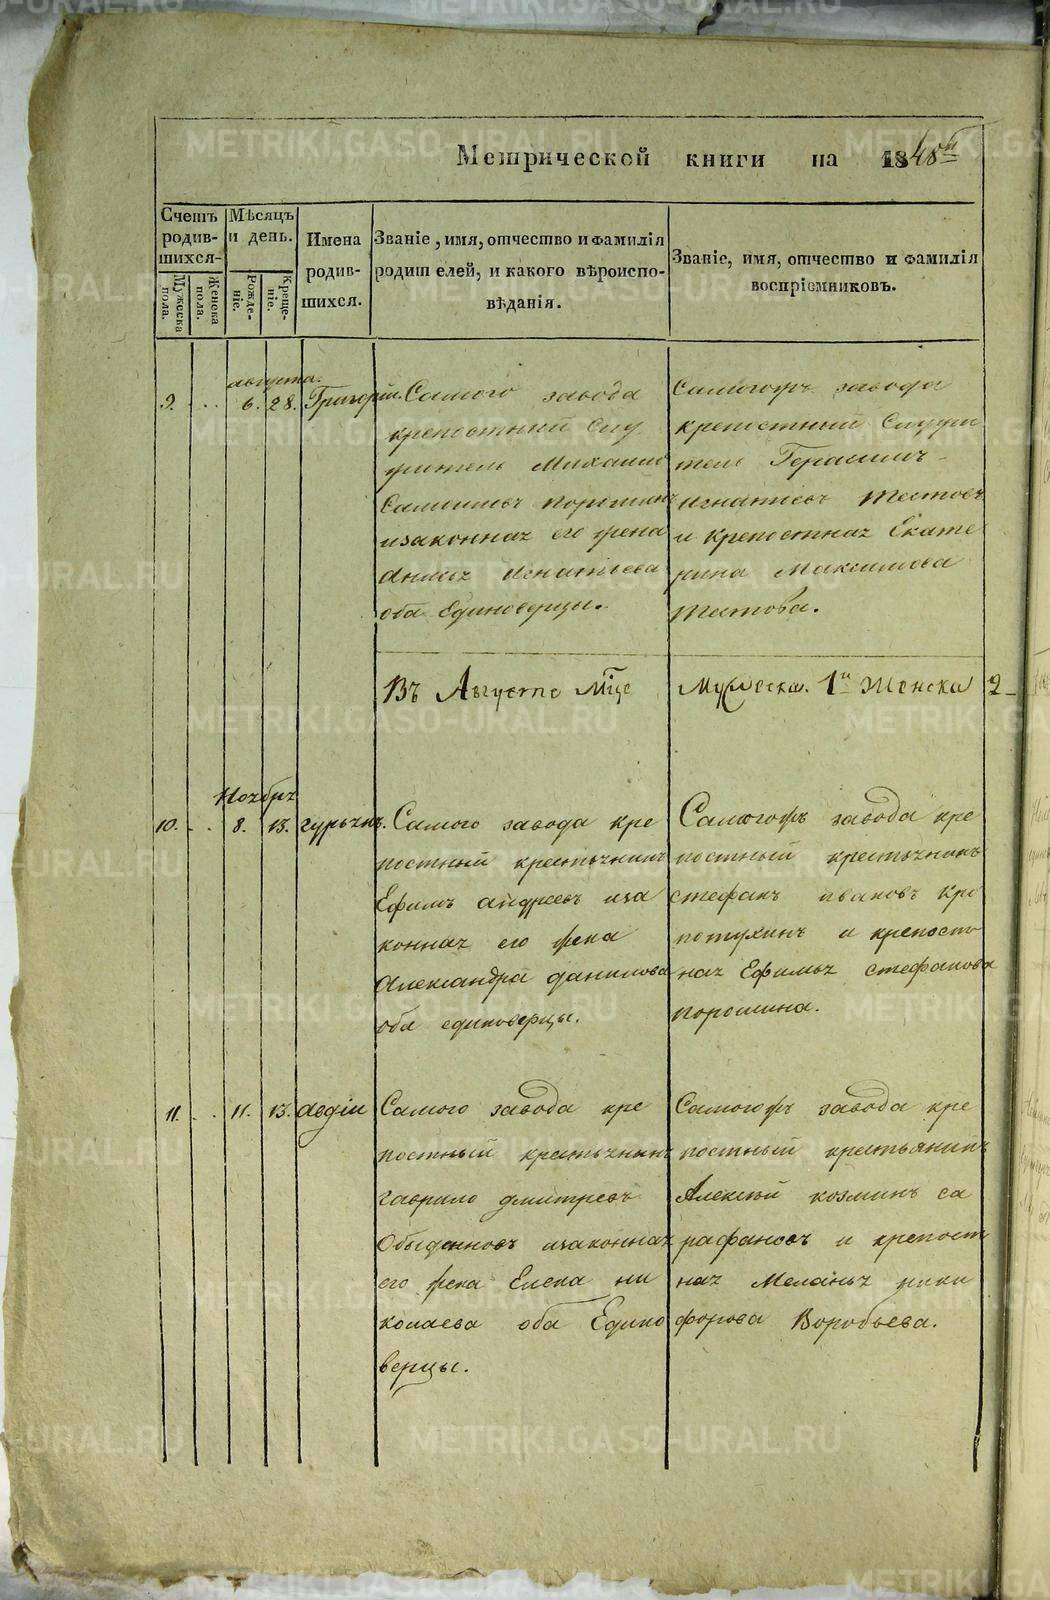 METRIKI.GASO-URAL.RU
Метрической книги на 1848й
Счетъ родив-шихся
Мужеска пола.
Женска пола.
Мѣсяцъ и день.
Рожде-ніе.
Креще-ніе.
Имена родив-шихся.
Званіе, имя, отчество и фамилія
родителей, и какого вѣроиспо-
вѣданія.
Званіе, имя, отчество и фамилія
воспріемниковъ.
августа.
9. 6. 28. Григорій.
Самого завода
крепостный Слу
житель Михаило
Самоиловъ Поршин
изаконная его жена
Анисья Игнатіева
оба Единоверцы.
Самогожъ завода
крепостный Служи
тель Герасимъ
Игнатіевъ
и крепостная Екате
рина Максимова
Въ Августе Мце Мужеска. 1н Женска 2
Ноября
10. 8. 13. гурьянъ.
Самого завода кре
постный крестьянинъ
Ефимъ андреевъ иза
конная его жена
Александра данилова
оба единоверцы.
Самогожъ завода кре
постный крестьянинъ
стефанъ ивановъ Кро
потухинъ и крепост
ная Ефимья стефанова
порошина.
11. 11. 13. авдіи
Самого завода кре
постный крестьянинъ
гаврило дмитревъ
Обыденновъ изаконная
его жена Елена ни
колаева оба Едино
верцы.
Самогожъ завода кре
постный крестьянинъ
Алексѣй козминъ са
рафановъ и крепост
ная Меланья ники
форова Воробьева.